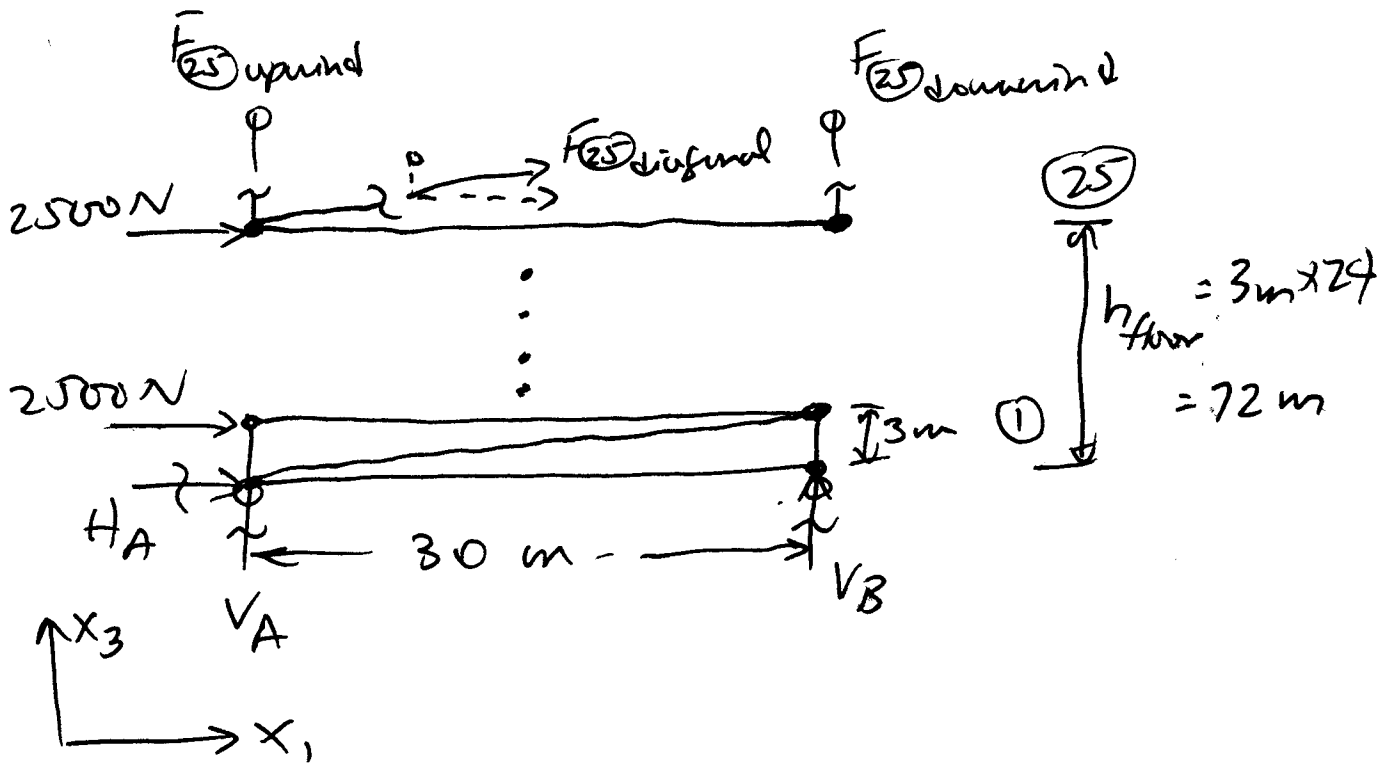 F㉕ upwind
F㉕ downwind
F㉕ diagonal
㉕
2500N
= 3m×24
h floor
= 72 m
2500N
3m
①
H_A
30 m
V_A
V_B
X₃
X₁